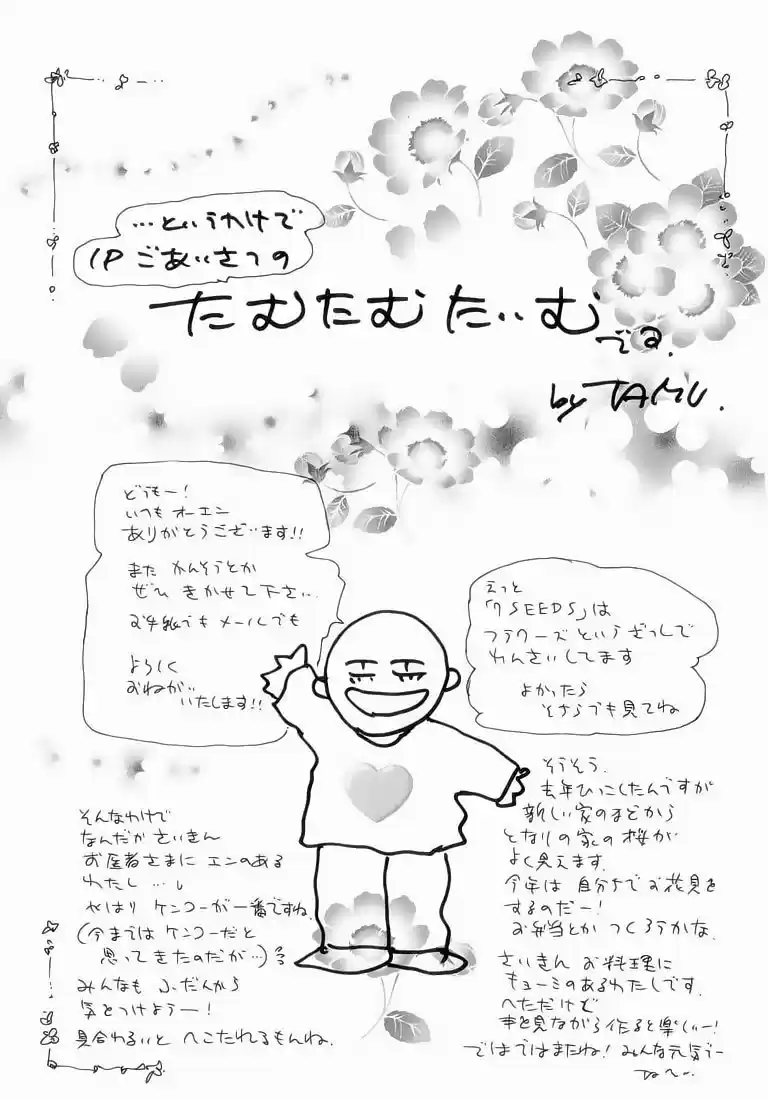 …というわけで
1P ごあいさつの
たむたむたいむ
です.
by TAMU.
どうもー!
いつも オーエン
ありがとうございます!!
また かんそうとか
ぜひ きかせて下さい…
お手紙でも メールでも
よろしく
おねがい
いたします!!
えっと
「7SEEDS」は
フラワーズ というざっしで
れんさいしてます
よかったら
そちらでも見てね
そうそう.
去年ひっこしたんですが
新しい家のまどから
となりの家の桜が
よく見えます.
今年は 自分ちで お花見を
するのだー!
お弁当とか つくろうかな.
さいきん お料理に
キョーミのあるわたしです.
へただけど
本を見ながら作ると楽しいー!
ではではまたね! みんな元気で
ねー…
そんなわけで
なんだか さいきん
お医者さまに エンのある
わたし …
やはり ケンコーが一番ですね.
(今までは ケンコーだと
思ってきたのだが…)
みんなも ふだんから
気をつけようー!
具合わるいと へこたれるもんね.